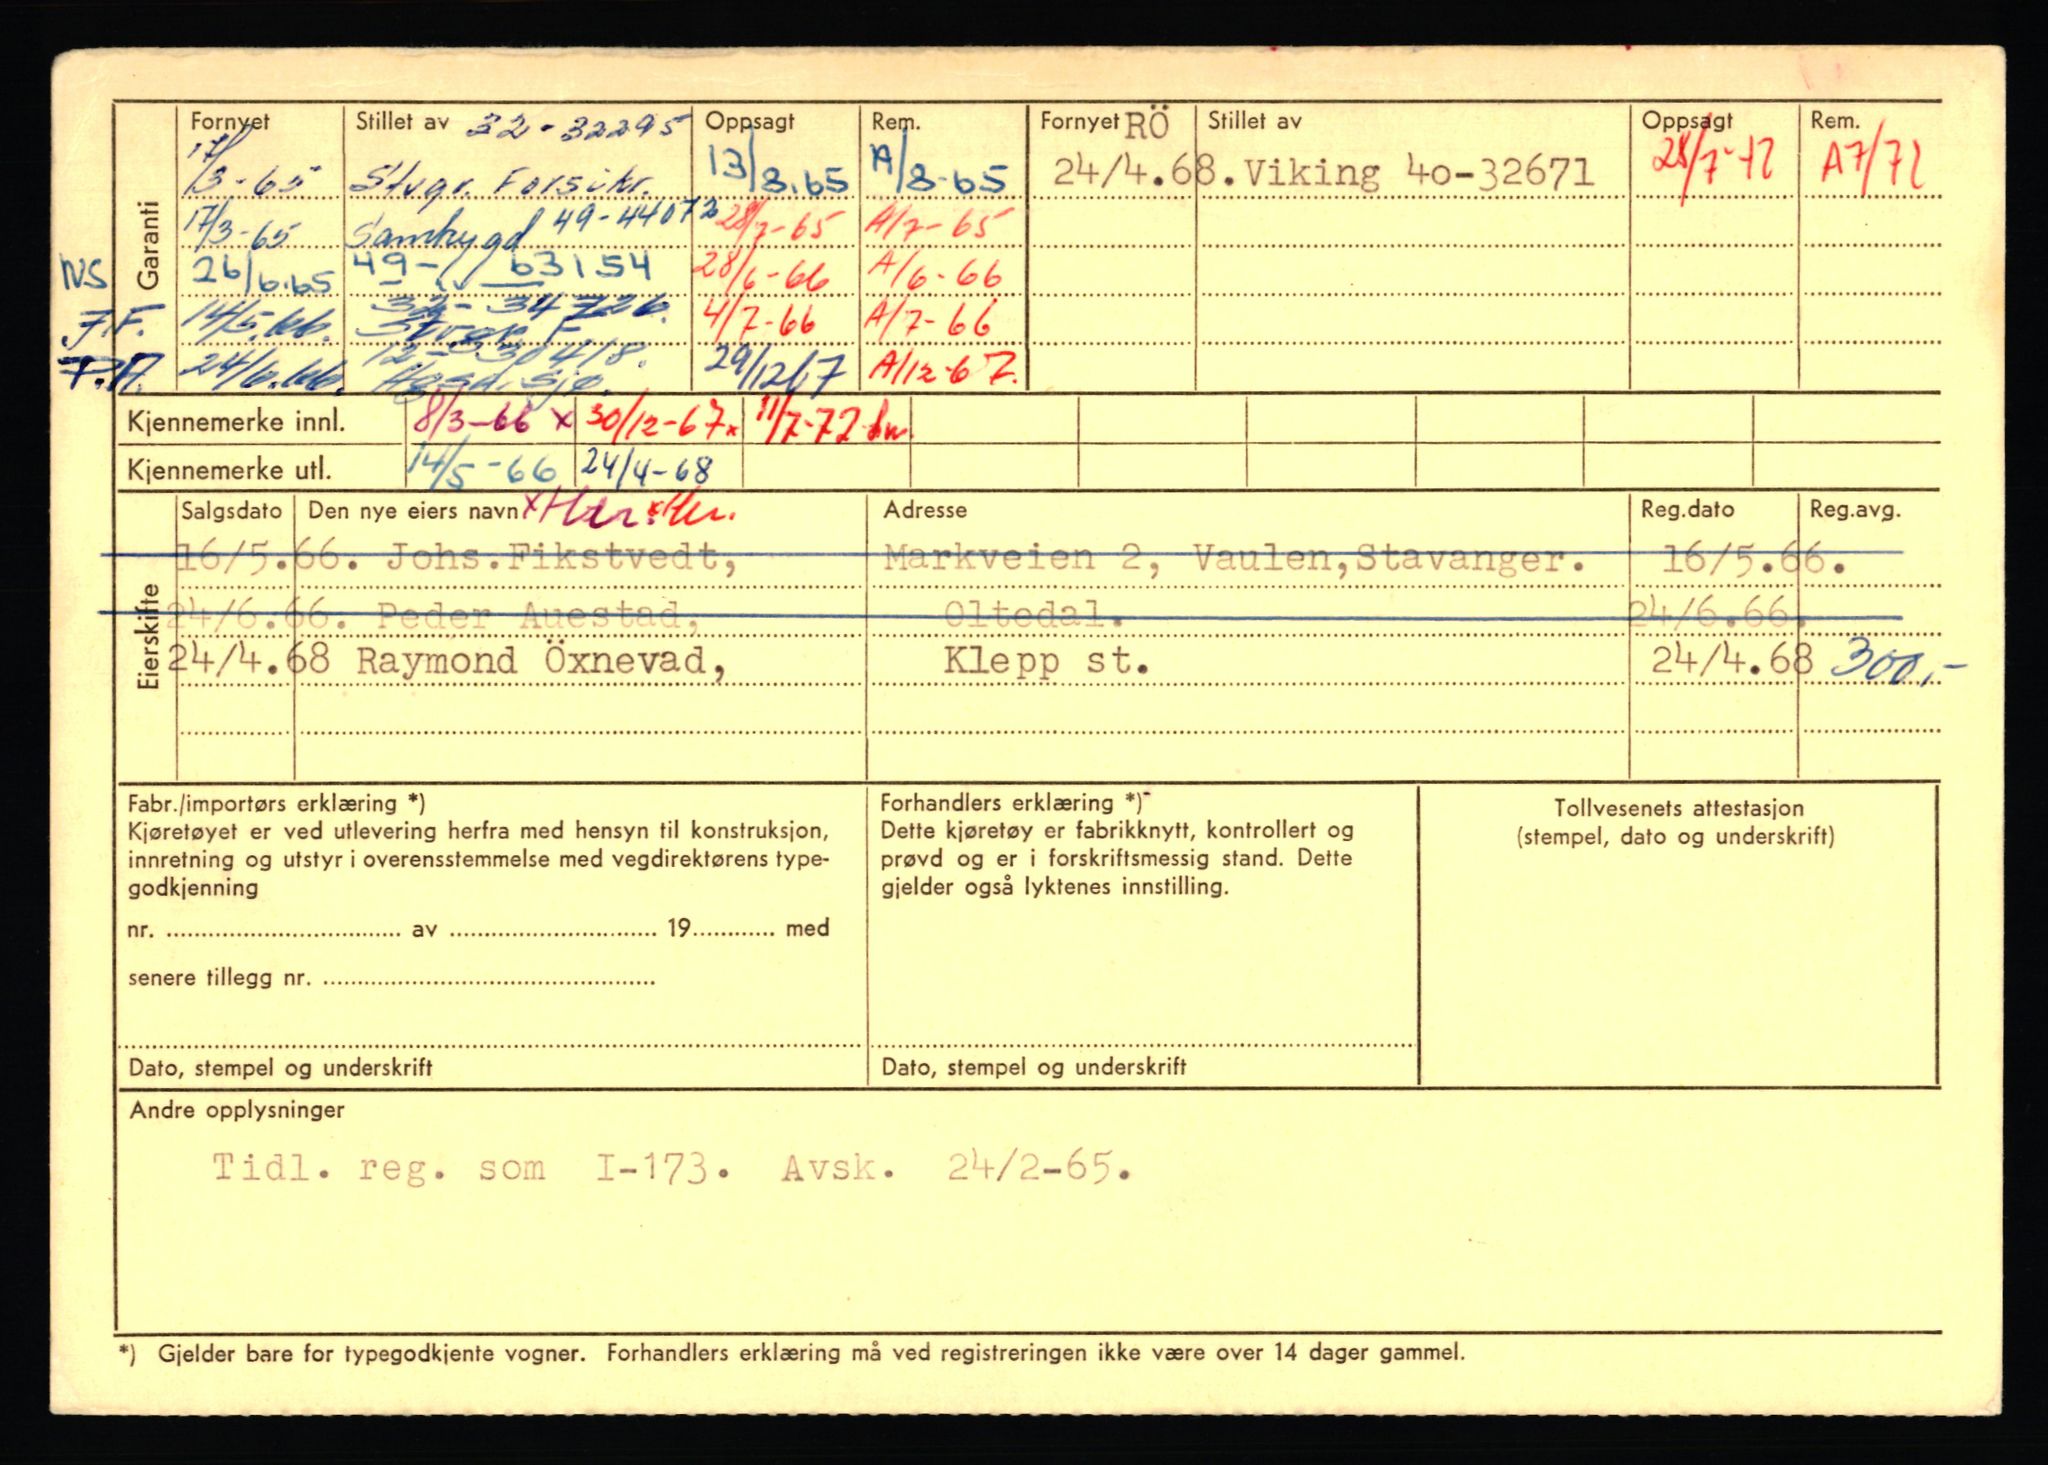 Fornyet Stillet av 32-32295 Oppsagt Rem. Fornyet RÖ Stillet av Oppsagt Rem.
17/3-65 Stvgr. Forsikr. 13/8.65 A/8-65 24/4.68. Viking 4o-32671 28/7-72 A7/72
Garanti
17/3-65 Samhygd 49-44072 28/7-65 A/7-65
NS 26/6.65 49- 63154 28/6-66 A/6-66
J.F. 14/5.66. 32-34726. Stvgr. F 4/7-66 A/7-66
P.A. 24/6.66. 12-30418. 29/12 67 A/12-67.
Kjennemerke innl. 8/3-66 x 30/12-67 x 11/7-72
Kjennemerke utl. 14/5-66 24/4-68
Salgsdato Den nye eiers navn x Her. x Her. Adresse Reg.dato Reg.avg.
Eierskifte
16/5.66. Johs.Fikstvedt, Markveien 2, Vaulen,Stavanger. 16/5.66.
24/6.66. Peder Auestad, Oltedal. 24/6.66.
24/4.68 Raymond Öxnevad, Klepp st. 24/4.68 300,-
Fabr./importørs erklæring *)
Kjøretøyet er ved utlevering herfra med hensyn til konstruksjon,
innretning og utstyr i overensstemmelse med vegdirektørens type-
godkjenning
nr. ................ av ................ 19............ med
senere tillegg nr. ................
Dato, stempel og underskrift
Forhandlers erklæring *)
Dette kjøretøy er fabrikknytt, kontrollert og
prøvd og er i forskriftsmessig stand. Dette
gjelder også lyktenes innstilling.
Dato, stempel og underskrift
Tollvesenets attestasjon
(stempel, dato og underskrift)
Andre opplysninger
Tidl. reg. som I-173. Avsk. 24/2-65.
*) Gjelder bare for typegodkjente vogner. Forhandlers erklæring må ved registreringen ikke være over 14 dager gammel.